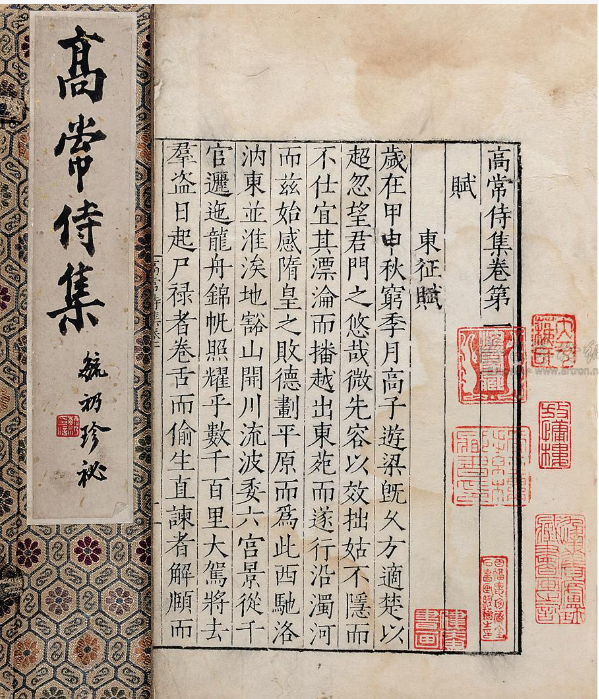 高常侍集
毓礽珍祕
高常侍集卷第一
賦
東征賦
歲在甲申秋窮季月高子遊梁旣久方適楚以
超忽望君門之悠哉微先容以效拙姑不隱而
不仕宜其漂淪而播越出東苑而遂行沿濁河
而茲始感隋皇之敗德劃平原而爲此西馳洛
汭東並淮涘地豁山開川流波委六宮景從千
官邐迤龍舟錦帆照耀乎數千百里大駕將去
羣盜日起尸禄者卷舌而偷生直諫者解頤而